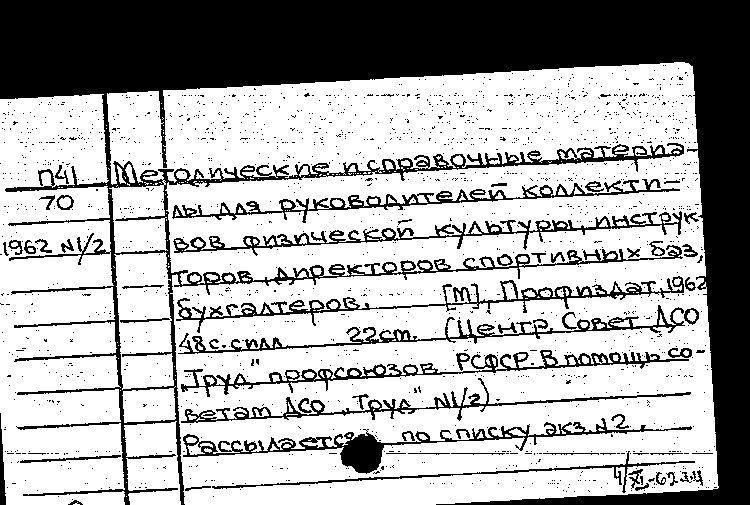 П41 Методические и справочные материа-
70 лы для руководителей коллекти-
1962 N1/2 вов физической культуры, инструк-
торов, директоров спортивных баз,
бухгалтеров. [М], Профиздат, 1962
48с. с илл. 22 cm. (Центр. Совет ДСО
„Труд" профсоюзов РСФСР. В помощь со-
ветам ДСО „Труд" N1/2).
Рассылается по списку, экз. N2.
4/XI-62